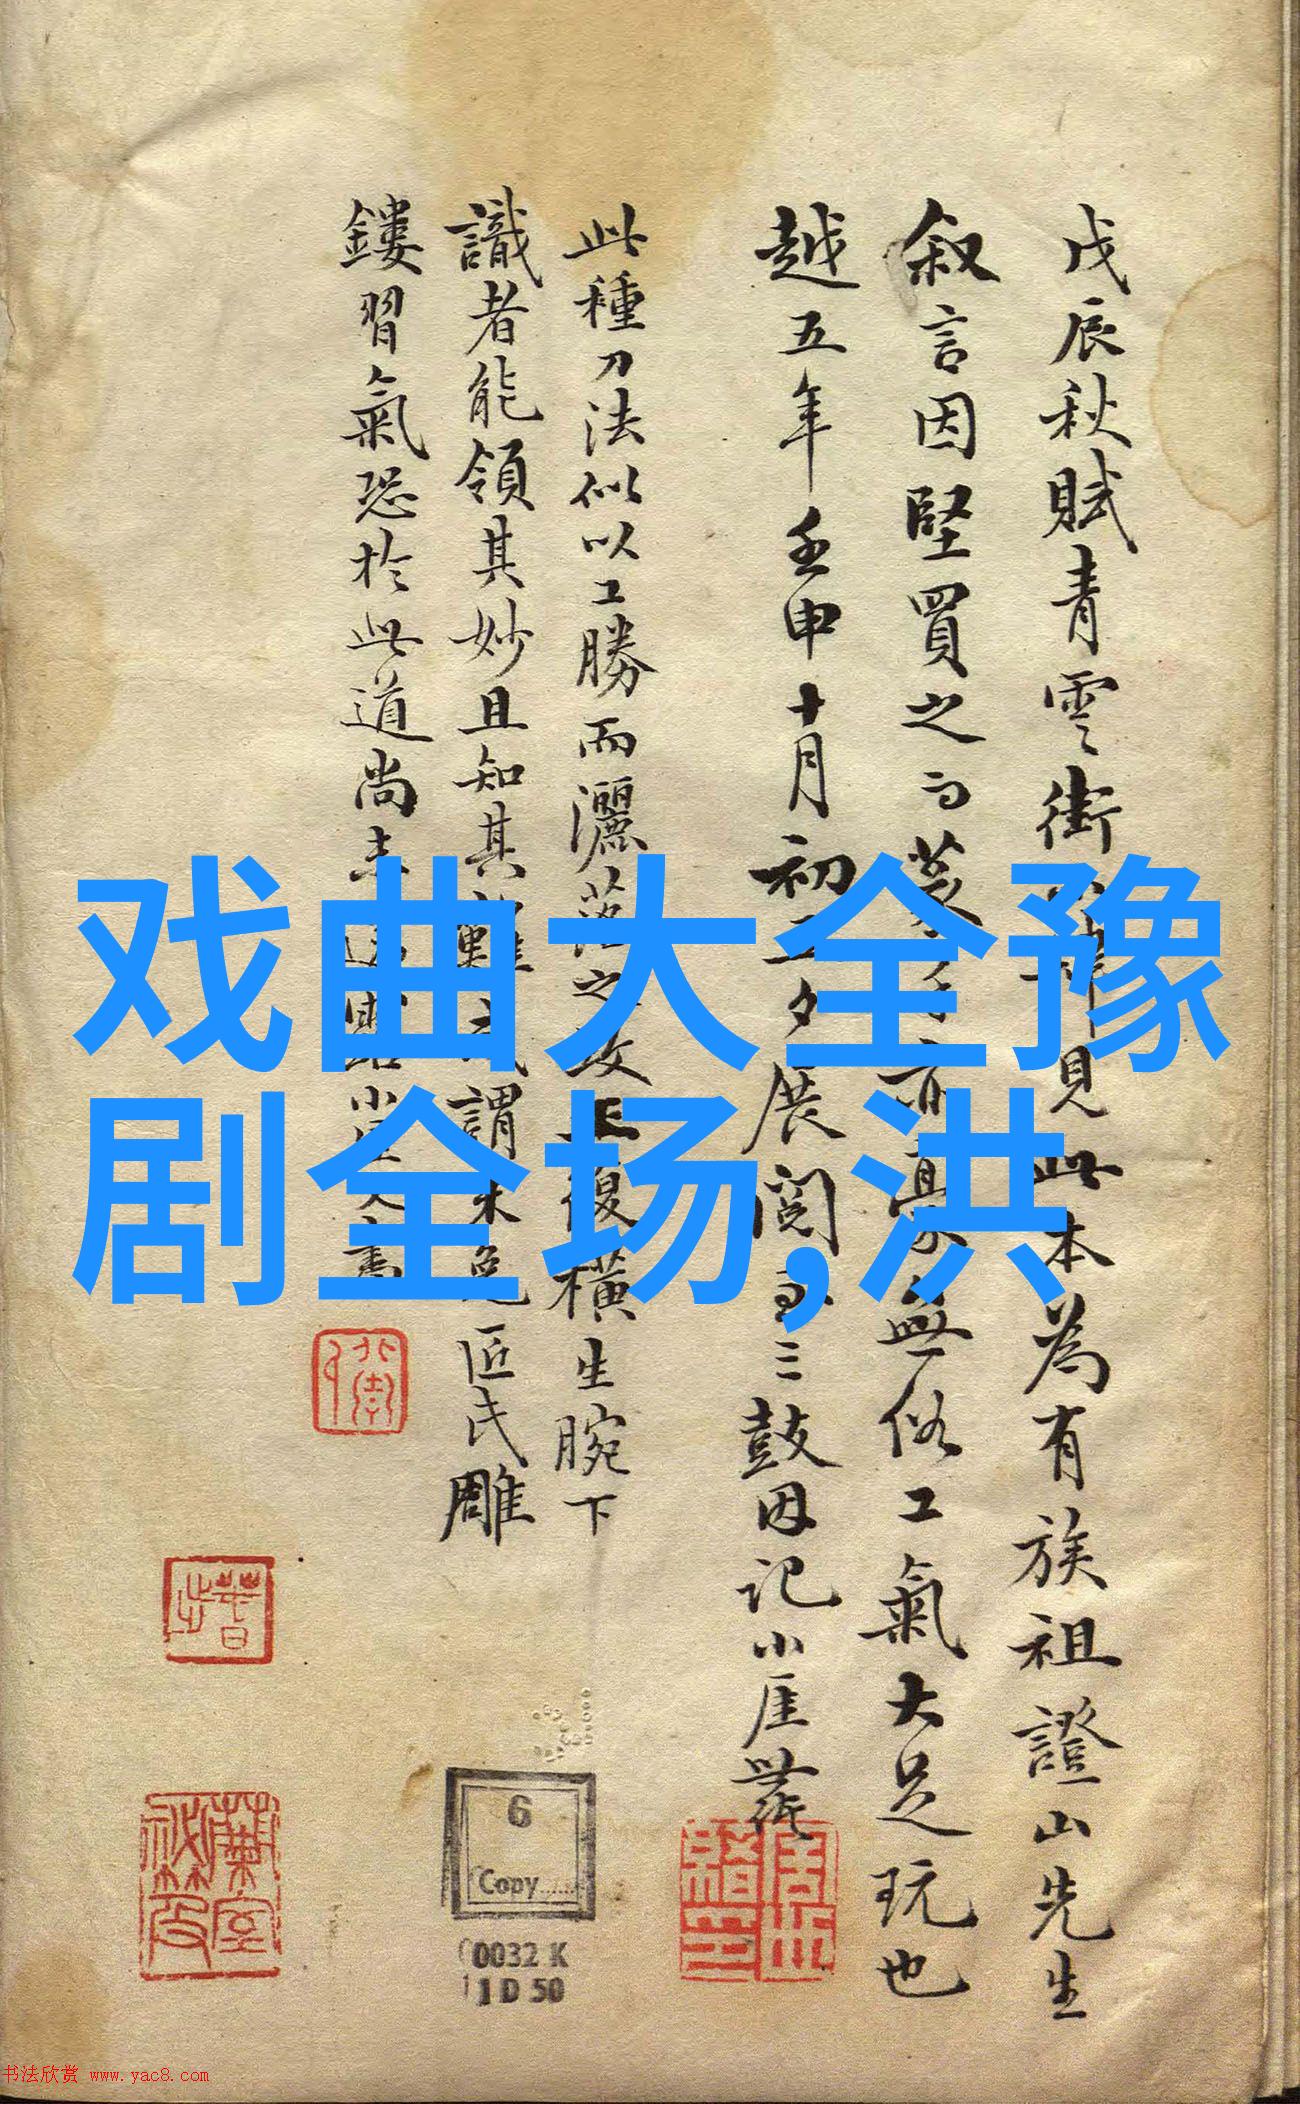 戊辰秋賦青雲街肆見此本為有族祖證山先生
叙言因堅買之
亦豪無俗工氣大足玩也
越五年壬申十月初二夕展閱至三鼓因記小厓
此種刀法似以工勝而灑落之致正復橫生腕下
識者能領其妙且知其難或謂未免匠氏雕
鏤習氣恐於此道尚未
戏曲大全豫
剧全场,洪
6
Copy......
0032 K
1 D 50
书法欣赏 www.yac8.com